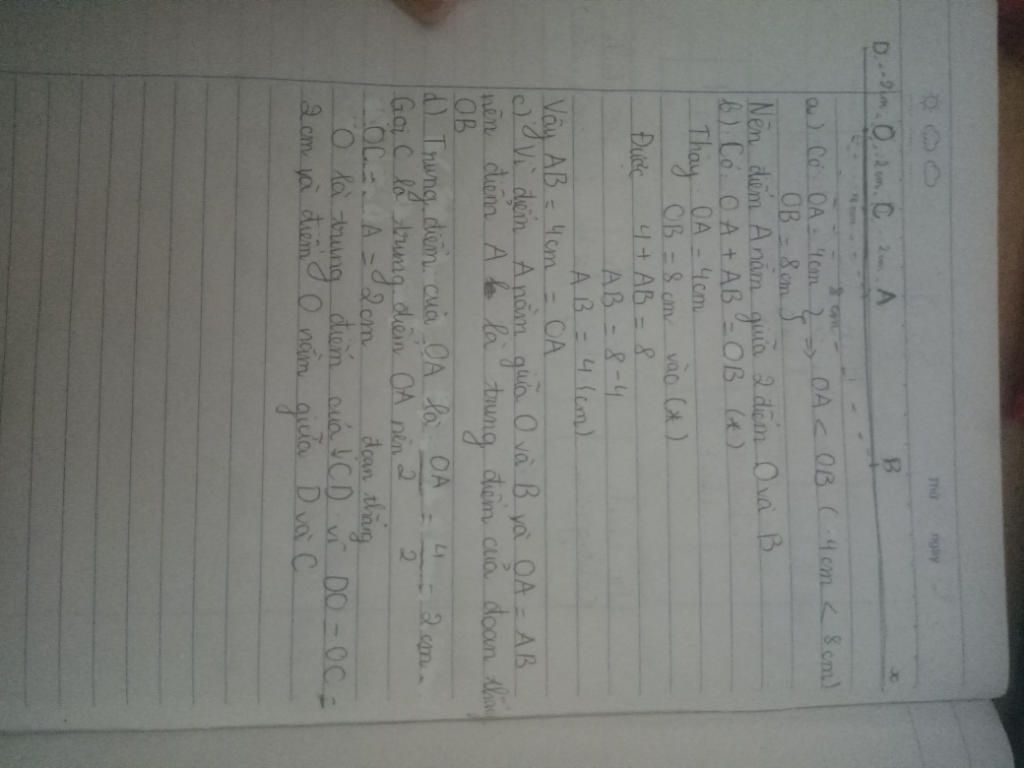 Thứ ngày
D 2cm O 2cm C 2cm A B x
4cm
8cm
a) Có OA = 4cm } => OA < OB ( 4cm < 8cm)
OB = 8cm
Nên điểm A nằm giữa 2 điểm O và B
b) Có OA + AB = OB (*)
Thay OA = 4cm
OB = 8cm vào (*)
Được 4 + AB = 8
AB = 8 - 4
AB = 4 (cm)
Vậy AB = 4cm = OA
c) Vì điểm A nằm giữa O và B và OA = AB
nên điểm A là trung điểm của đoạn thẳng
OB
d) Trung điểm của OA là OA/2 = 4/2 = 2cm.
Gọi C là trung điểm OA nên
OC = A = 2cm
đoạn thẳng
O là trung điểm của CD vì DO = OC =
2cm và điểm O nằm giữa D và C